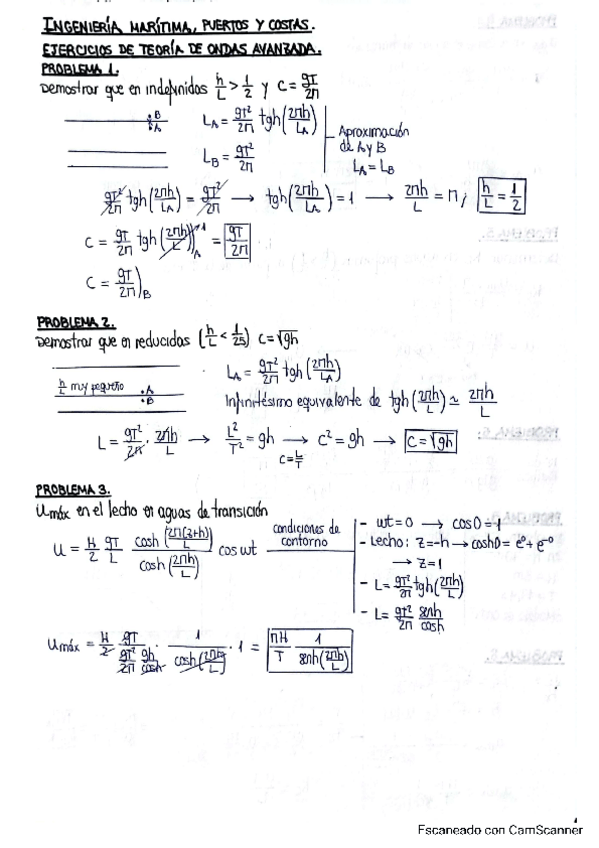 INGENIERÍA MARÍTIMA, PUERTOS Y COSTAS.
EJERCICIOS DE TEORÍA DE ONDAS AVANZADA.
PROBLEMA 1.
Demostrar que en indefinidas h/L > 1/2 y C = gT/2π
B
A
L_A = gT²/2π tgh(2πh/L_A)
L_B = gT²/2π
Aproximación
de A y B
L_A = L_B
gT²/2π tgh(2πh/L_A) = gT²/2π → tgh(2πh/L_A) = 1 → 2πh/L = π; h/L = 1/2
C = gT/2π tgh(2πh/L)]_A ↗1 = gT/2π
C = gT/2π]_B
PROBLEMA 2.
Demostrar que en reducidas (h/L < 1/25) C = √gh
L_A = gT²/2π tgh(2πh/L_A)
h/L muy pequeño
A
B
Infinitésimo equivalente de tgh(2πh/L) ≃ 2πh/L
L = gT²/2π · 2πh/L → L²/T² = gh → C² = gh → C = √gh
C = L/T
PROBLEMA 3.
Umáx en el lecho en aguas de transición
U = H/2 gT/L cosh(2π(z+h)/L)/cosh(2πh/L) cos wt
condiciones de
contorno
- wt = 0 → cos 0 = 1
- Lecho: z = -h → cosh 0 = e⁰ + e⁻⁰
→ z = 1
- L = gT²/2π tgh(2πh/L)
- L = gT²/2π senh/cosh
Umáx = H/2 gT/(gT²/2π gh/cosh) · 1/cosh(2πh/L) · 1 = πH/T 1/senh(2πh/L)
1
Escaneado con CamScanner